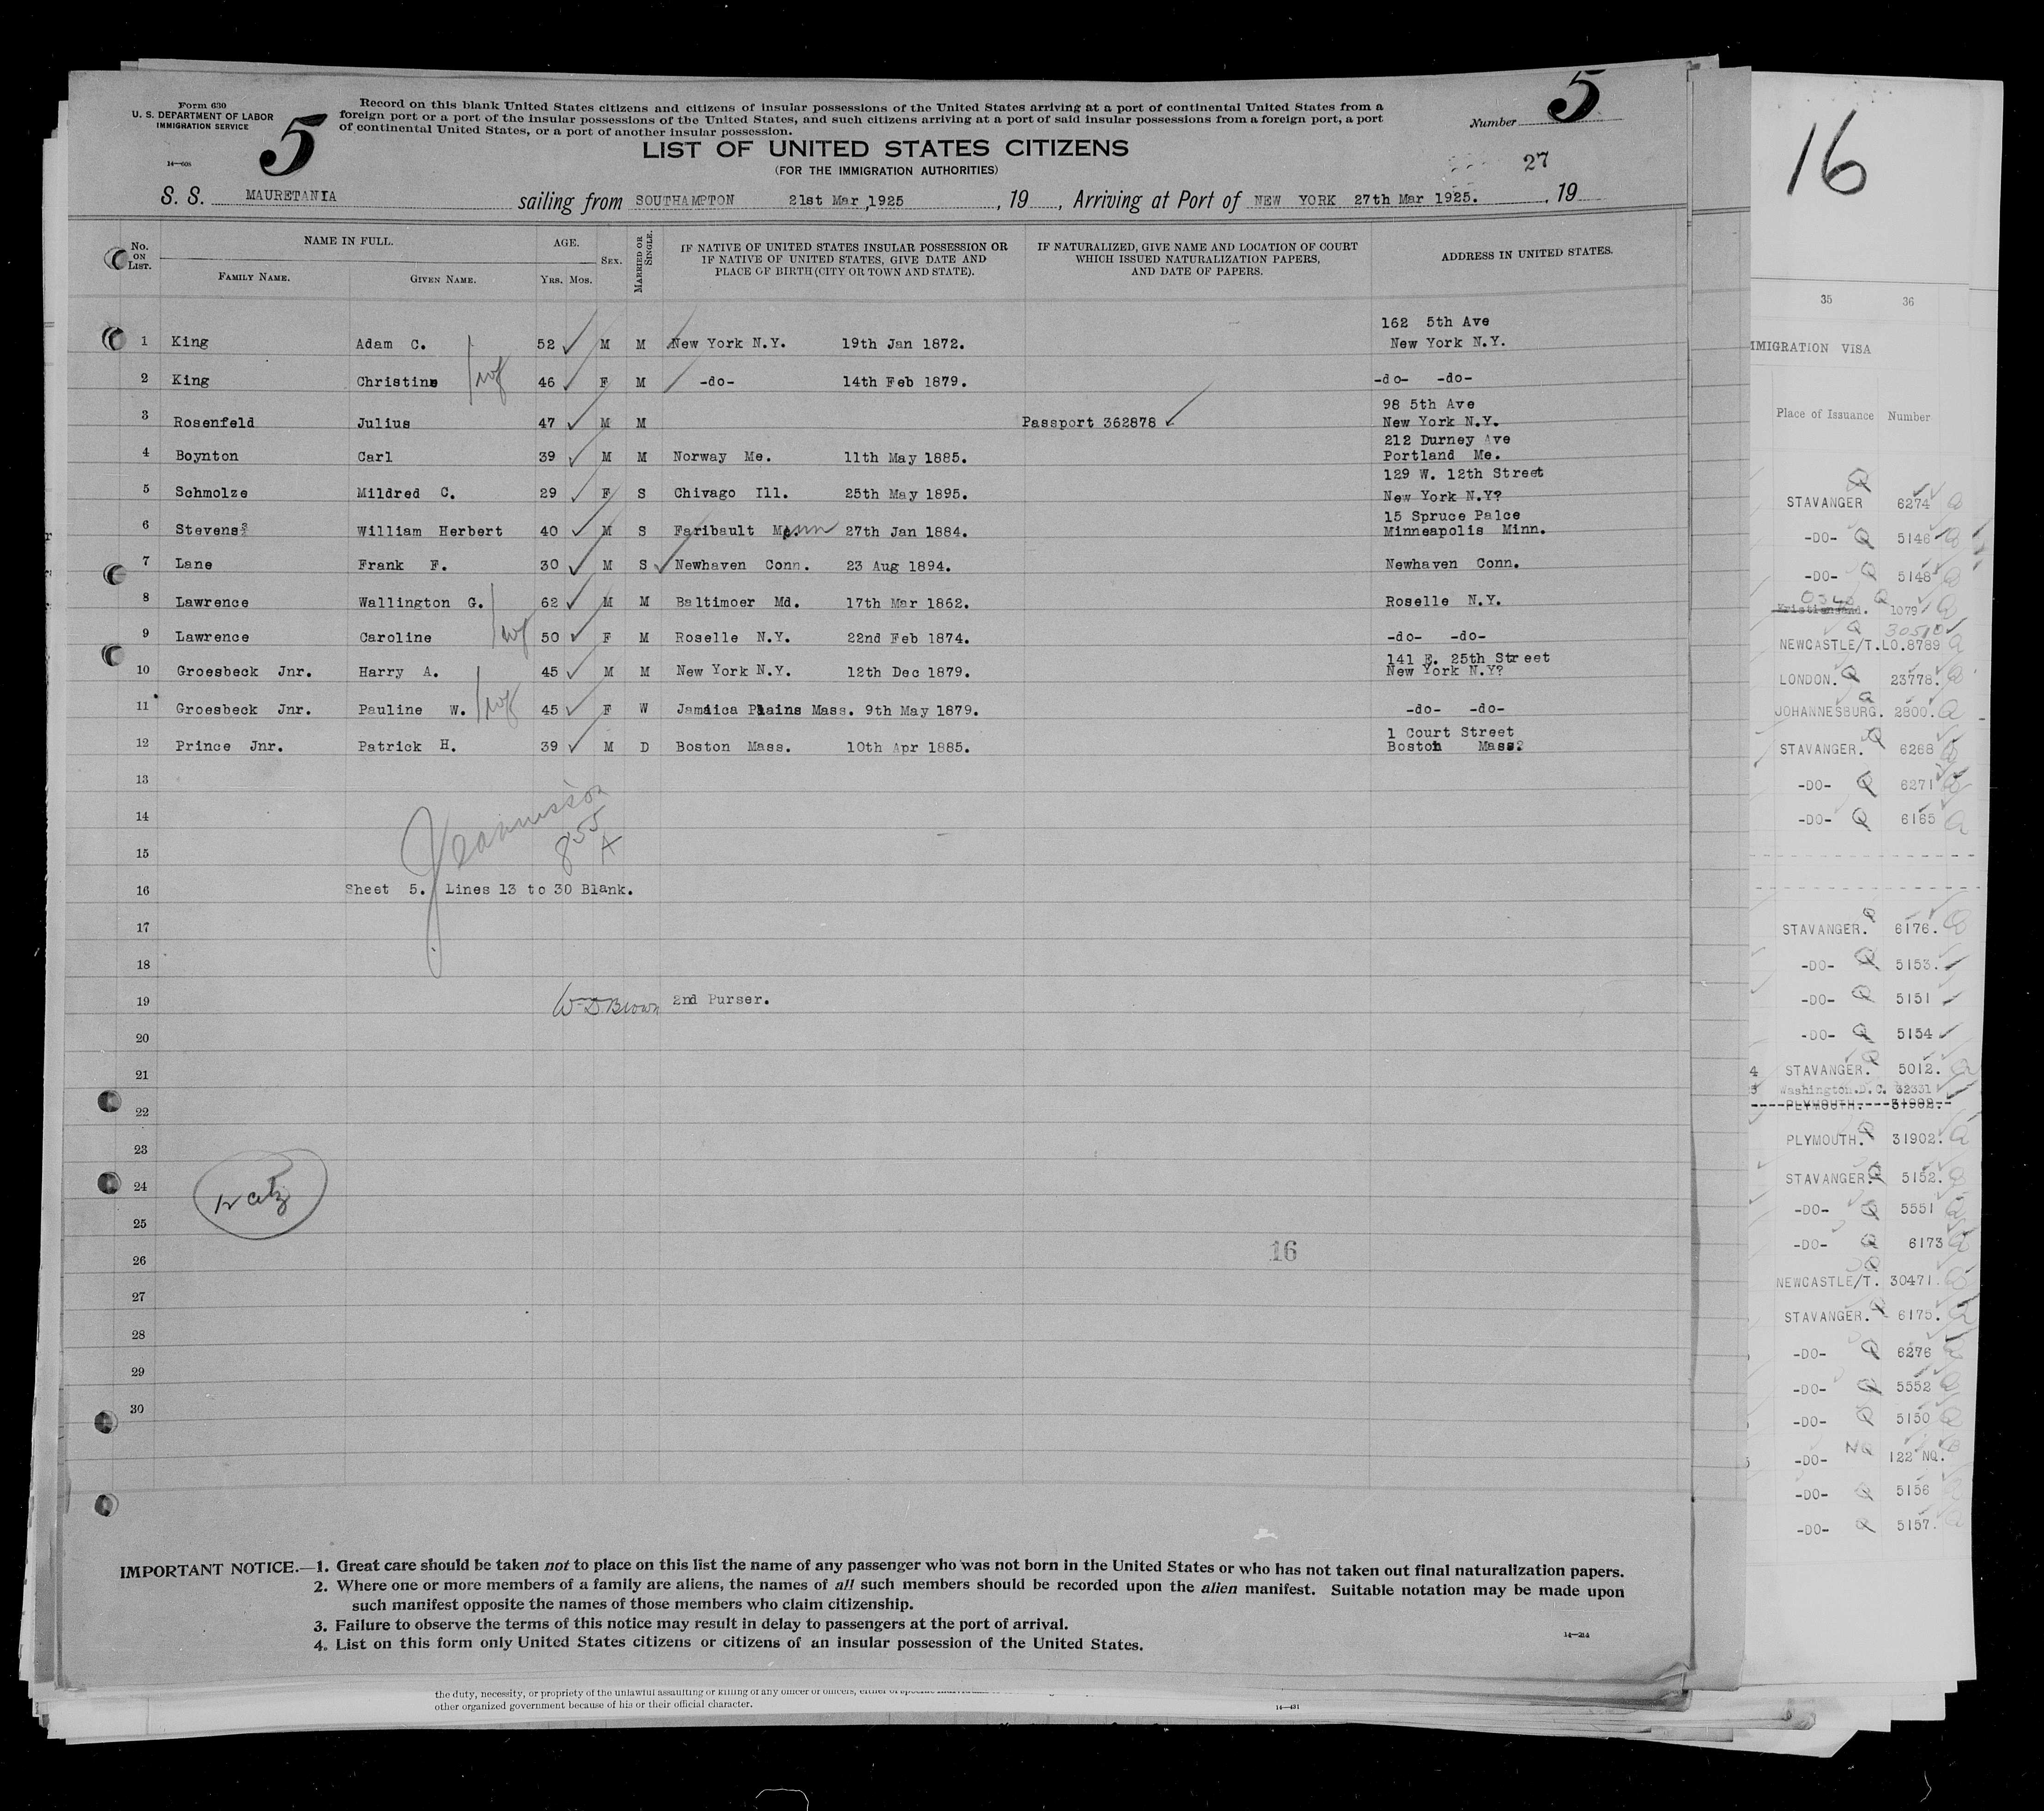 Form 630
U. S. DEPARTMENT OF LABOR
IMMIGRATION SERVICE
14—608
5
Record on this blank United States citizens and citizens of insular possessions of the United States arriving at a port of continental United States from a
foreign port or a port of the insular possessions of the United States, and such citizens arriving at a port of said insular possessions from a foreign port, a port
of continental United States, or a port of another insular possession.
Number 5
LIST OF UNITED STATES CITIZENS
(FOR THE IMMIGRATION AUTHORITIES)
27
S. S. MAURETANIA sailing from SOUTHAMPTON 21st Mar ,1925 , 19 , Arriving at Port of NEW YORK 27th Mar 1925. , 19
No. ON LIST. NAME IN FULL. AGE. SEX. MARRIED OR SINGLE. IF NATIVE OF UNITED STATES INSULAR POSSESSION OR IF NATIVE OF UNITED STATES, GIVE DATE AND PLACE OF BIRTH (CITY OR TOWN AND STATE). IF NATURALIZED, GIVE NAME AND LOCATION OF COURT WHICH ISSUED NATURALIZATION PAPERS, AND DATE OF PAPERS. ADDRESS IN UNITED STATES.
FAMILY NAME. GIVEN NAME. YRS. MOS.
162 5th Ave
1 King Adam C. 52 M M New York N.Y. 19th Jan 1872. New York N.Y.
wf
2 King Christine 46 F M -do- 14th Feb 1879. -do- -do-
98 5th Ave
3 Rosenfeld Julius 47 M M Passport 362878 New York N.Y.
212 Durney Ave
4 Boynton Carl 39 M M Norway Me. 11th May 1885. Portland Me.
129 W. 12th Street
5 Schmolze Mildred C. 29 F S Chivago Ill. 25th May 1895. New York N.Y?
15 Spruce Palce
6 Stevens? William Herbert 40 M S Faribault Menn 27th Jan 1884. Minneapolis Minn.
7 Lane Frank F. 30 M S Newhaven Conn. 23 Aug 1894. Newhaven Conn.
8 Lawrence Wallington G. 62 M M Baltimoer Md. 17th Mar 1862. Roselle N.Y.
wf
9 Lawrence Caroline 50 F M Roselle N.Y. 22nd Feb 1874. -do- -do-
141 E. 25th Street
10 Groesbeck Jnr. Harry A. 45 M M New York N.Y. 12th Dec 1879. New York N.Y?
wf
11 Groesbeck Jnr. Pauline W. 45 F W Jamaica Plains Mass. 9th May 1879. -do- -do-
1 Court Street
12 Prince Jnr. Patrick H. 39 M D Boston Mass. 10th Apr 1885. Boston Mass?
13
14
855
A
15
16 Sheet 5. Lines 13 to 30 Blank.
17
18
19 W D Brown 2nd Purser.
20
21
22
23
24
25
26 16
27
28
29
30
IMPORTANT NOTICE.—1. Great care should be taken not to place on this list the name of any passenger who was not born in the United States or who has not taken out final naturalization papers.
2. Where one or more members of a family are aliens, the names of all such members should be recorded upon the alien manifest. Suitable notation may be made upon
such manifest opposite the names of those members who claim citizenship.
3. Failure to observe the terms of this notice may result in delay to passengers at the port of arrival.
4. List on this form only United States citizens or citizens of an insular possession of the United States.
14—214
the duty, necessity, or propriety of the unlawful assaulting or killing of any officer or officers, either of
other organized government because of his or their official character.
14—431
16
35 36
IMMIGRATION VISA
Place of Issuance Number
STAVANGER 6274
-DO- 5146
-DO- 5148
Kristiansand. 1079
30510
NEWCASTLE/T.LO.8789
LONDON. 23778.
JOHANNESBURG. 2800.
STAVANGER. 6268
-DO- 6271
-DO- 6165
STAVANGER. 6176.
-DO- 5153.
-DO- 5151
-DO- 5154
4 STAVANGER. 5012.
5 Washington.D.C. 32331
PLYMOUTH. 31902.
PLYMOUTH. 31902.
STAVANGER. 5152.
-DO- 5551
-DO- 6173
NEWCASTLE/T. 30471.
STAVANGER. 6175.
-DO- 6276
-DO- 5552
-DO- 5150
-DO- NQ 122 NQ.
-DO- 5156
-DO- 5157.